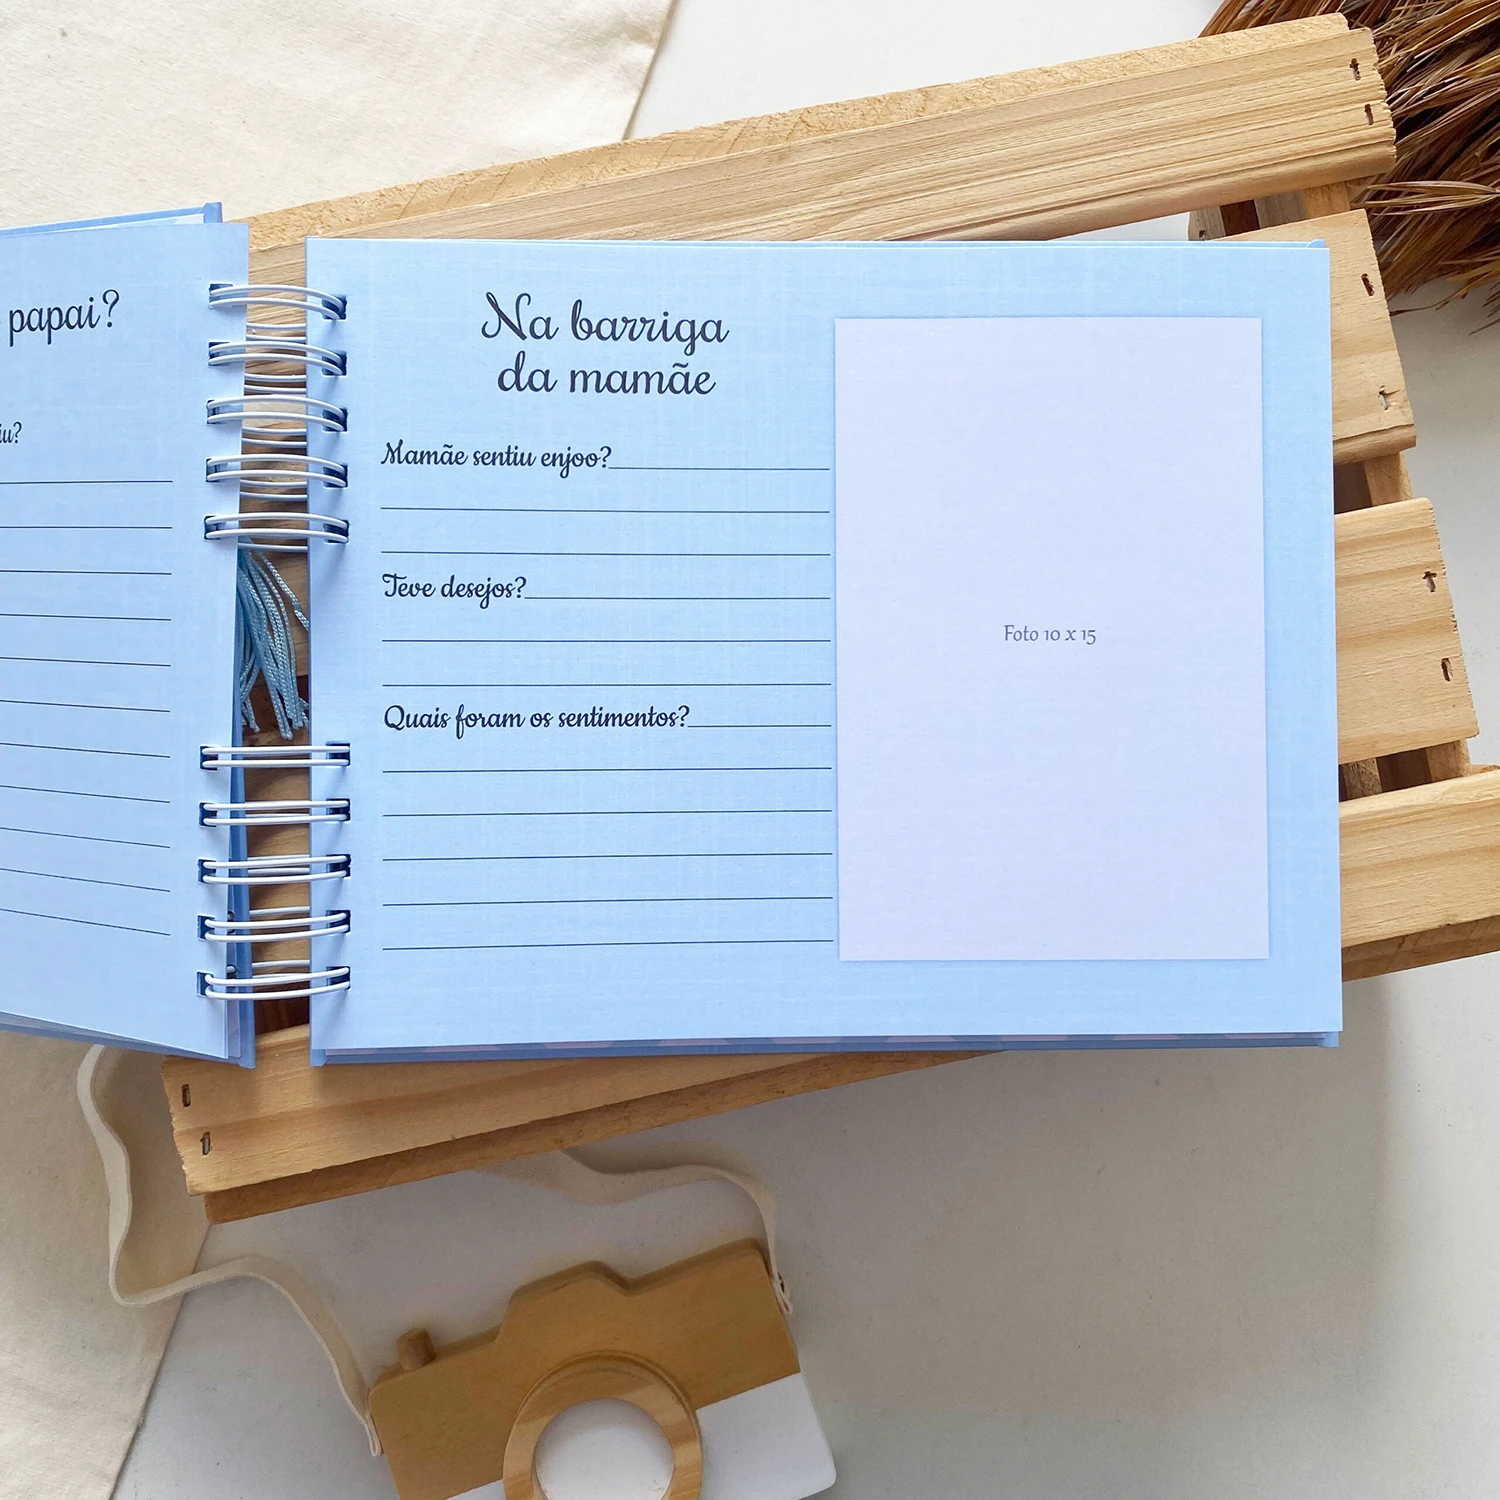 papai?
Na barriga
da mamãe
Mamãe sentiu enjoo?
Teve desejos?
Quais foram os sentimentos?
Foto 10 x 15